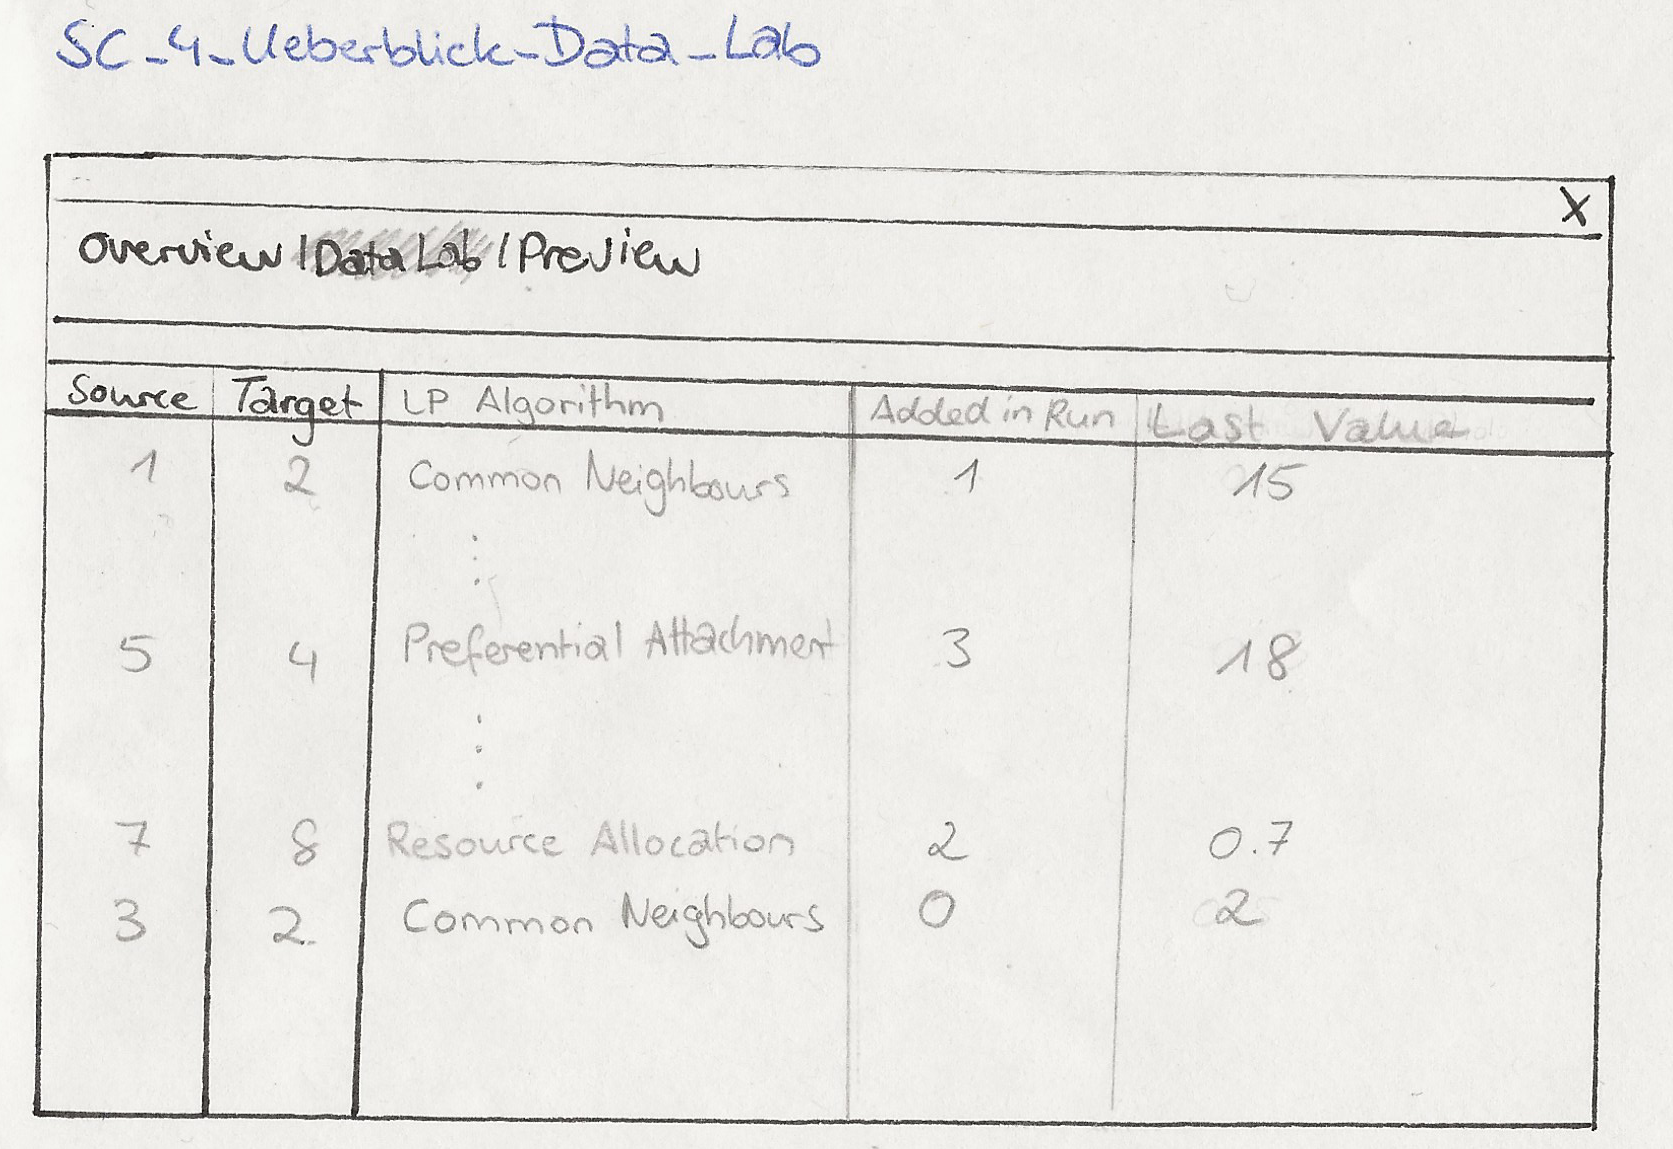 SC_4_Ueberblick_Data_Lab
X
Overview | Data Lab | Preview
Source Target LP Algorithm Added in Run Last Value
1 2 Common Neighbours 1 15
:
5 4 Preferential Attachment 3 18
⋮
7 8 Resource Allocation 2 0.7
3 2 Common Neighbours 0 2